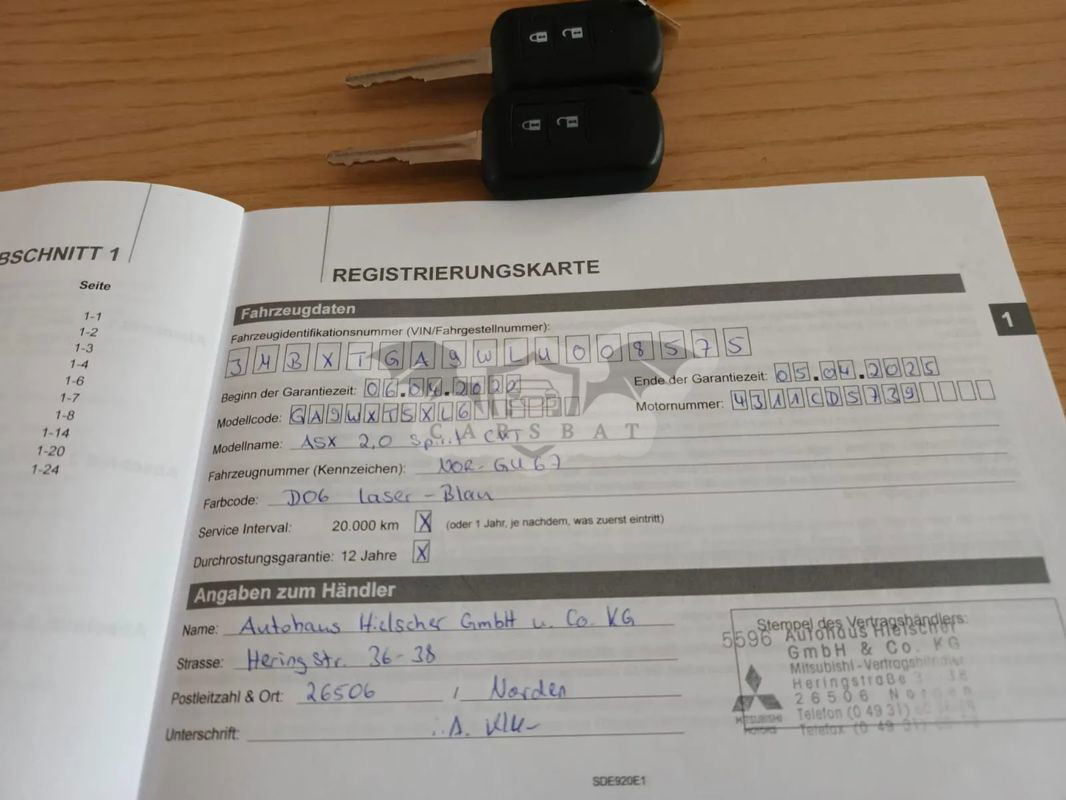 BSCHNITT 1
Seite
1-1
1-2
1-3
1-4
1-6
1-7
1-8
1-14
1-20
1-24
REGISTRIERUNGSKARTE
1
Fahrzeugdaten
Fahrzeugidentifikationsnummer (VIN/Fahrgestellnummer):
JMBXTGA9WLU008575
Beginn der Garantiezeit: 06.04.2022 Ende der Garantiezeit: 05.04.2025
Modellcode: GA9WXTSXL6 Motornummer: 4J11CD5739
CARSBAT
Modellname: ASX 2.0 Spirit CVT
Fahrzeugnummer (Kennzeichen): NOR-GU 67
Farbcode: D06 Laser-Blau
Service Interval: 20.000 km X (oder 1 Jahr, je nachdem, was zuerst eintritt)
Durchrostungsgarantie: 12 Jahre X
Angaben zum Händler
Name: Autohaus Hielscher GmbH u. Co. KG
Strasse: Heringstr. 36-38
Postleitzahl & Ort: 26506 / Norden
Unterschrift: i.A.
Stempel des Vertragshändlers:
5596 Autohaus Hielscher
GmbH & Co. KG
Mitsubishi-Vertragshändler
Heringstraße 38
26506 Norden
Telefon (0 49 31)
Telefax (0 49 31)
MITSUBISHI
MOTORS
SDE920E1